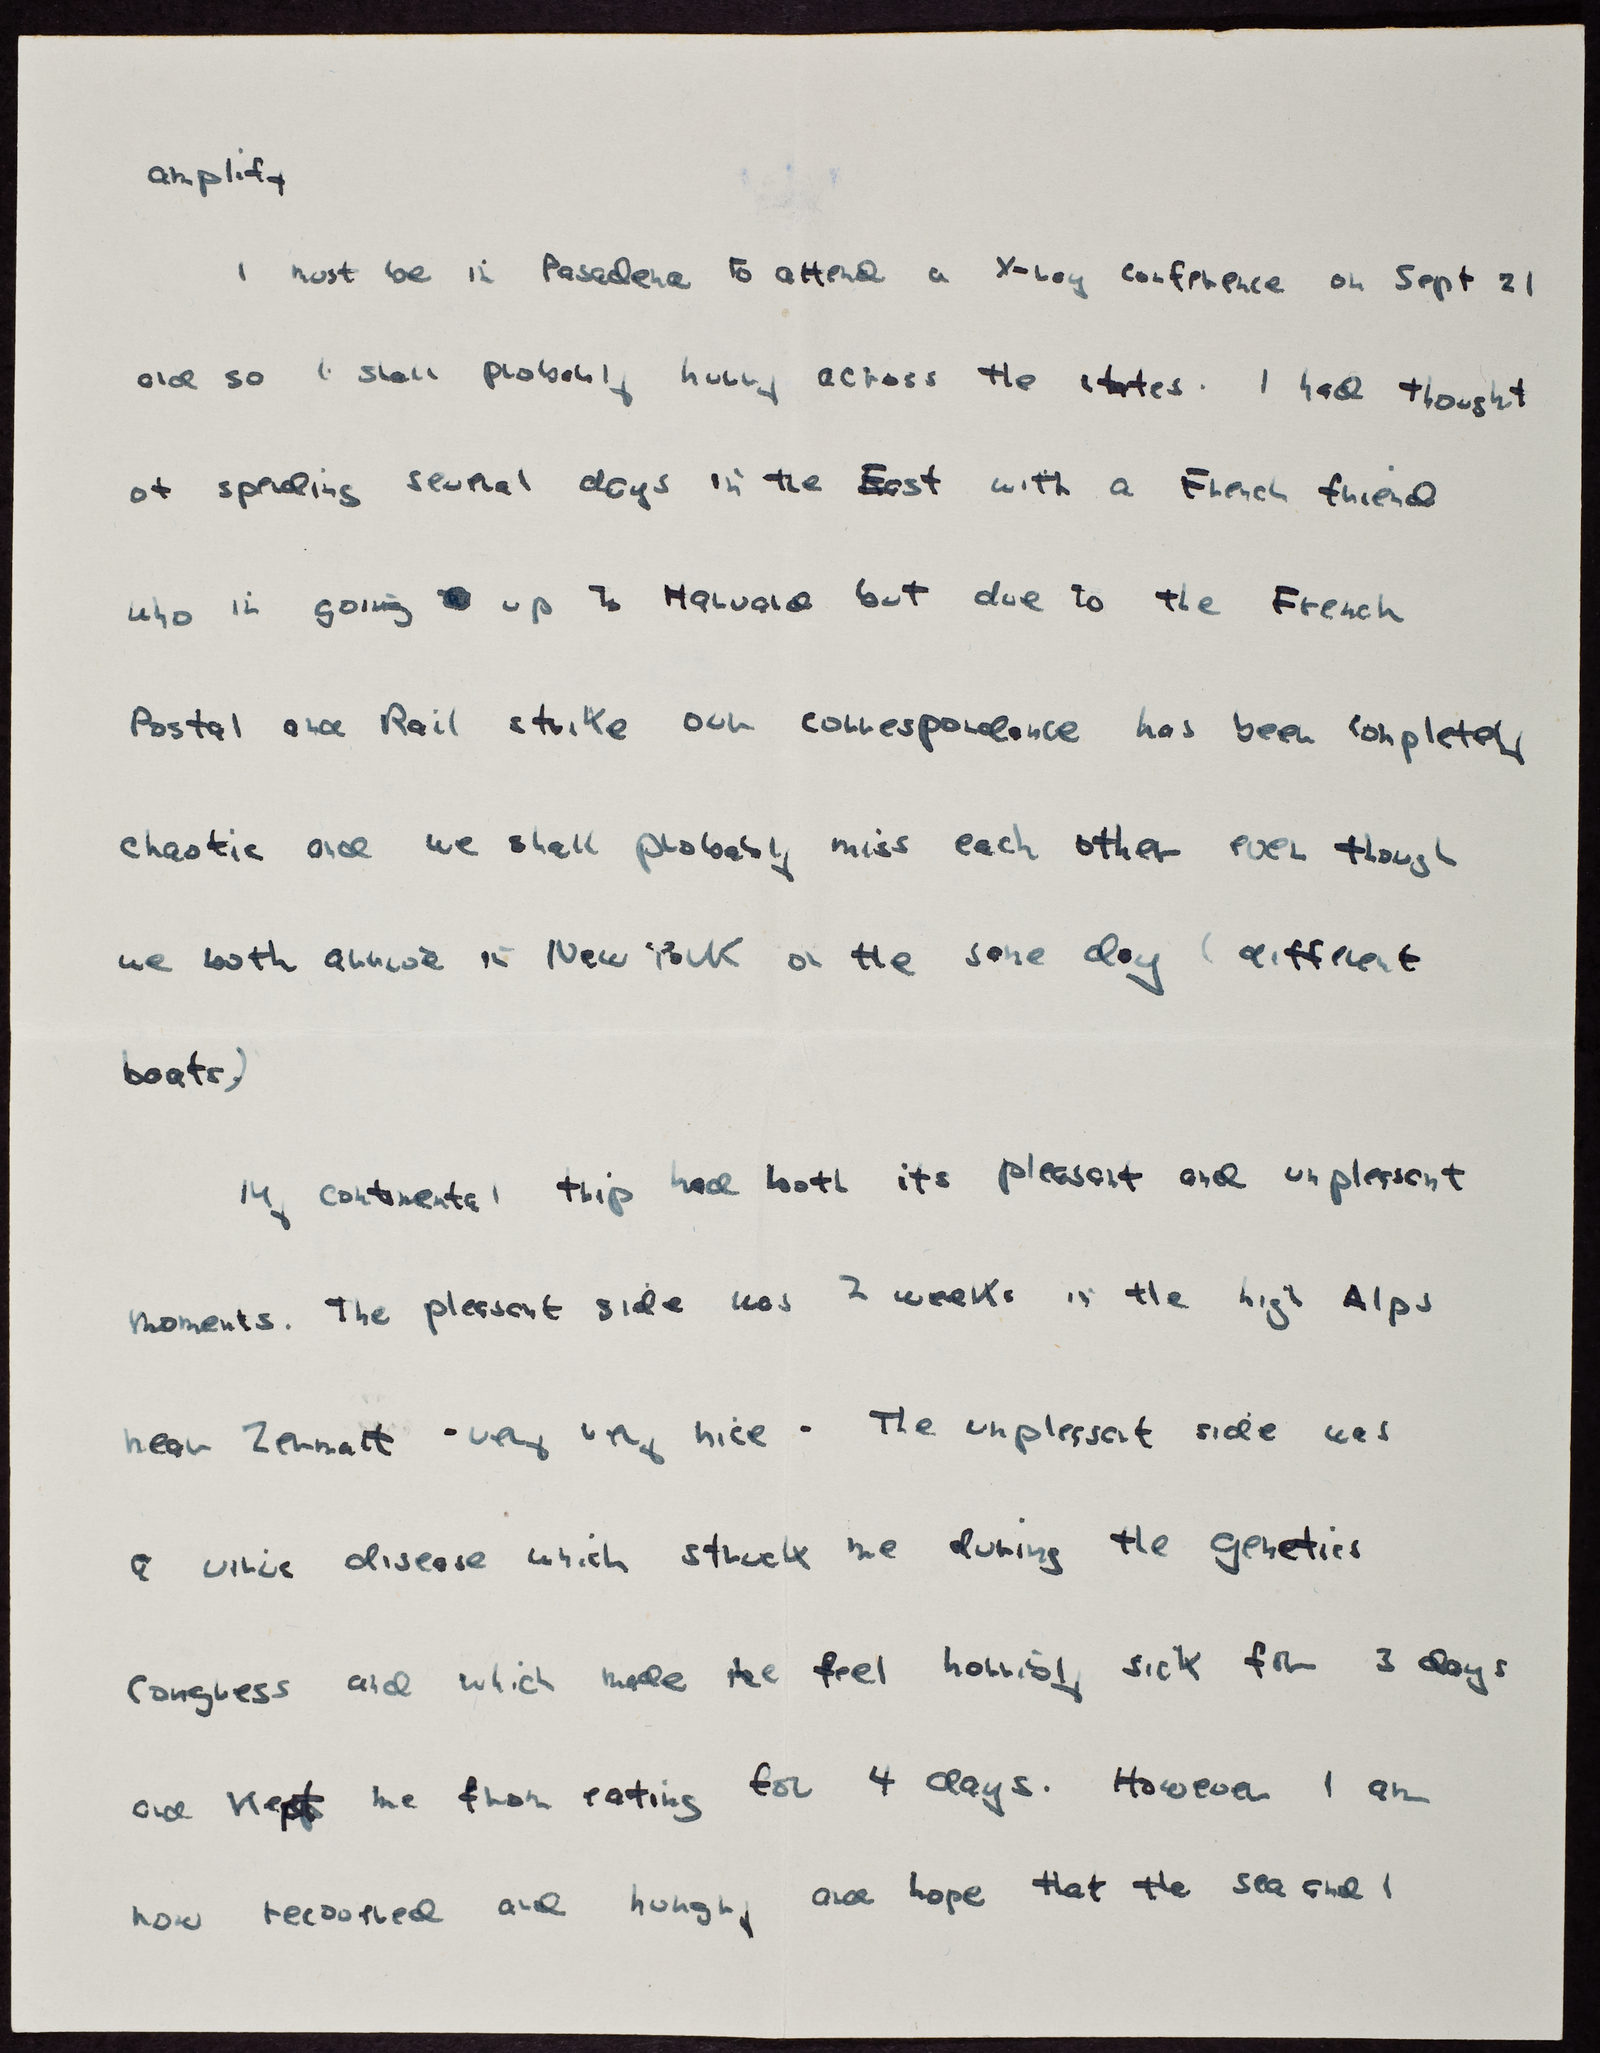 amplify
I must be in Pasadena to attend a X-ray conference on Sept 21
and so I shall probably hurry across the states. I had thought
of spending several days in the East with a French friend
who in going up to Harvard but due to the French
Postal and Rail strike our correspondance has been completely
chaotic and we shall probably miss each other even though
we both arrive in New York on the same day (different
boats)
My continental trip had both its pleasant and unpleasant
moments. The pleasant side was 2 weeks in the high Alps
near Zermatt - very very nice - The unpleasant side was
a virus disease which struck me during the Genetics
Congress and which made me feel horribly sick for 3 days
and kept me from eating for 4 days. However I am
now recovered and hungry and hope that the sea and I